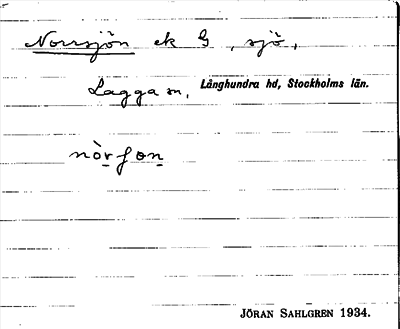 Norrsjön ek G, sjö,
Lagga sn, Långhundra hd, Stockholms län.
nòrʃon
JÖRAN SAHLGREN 1934.